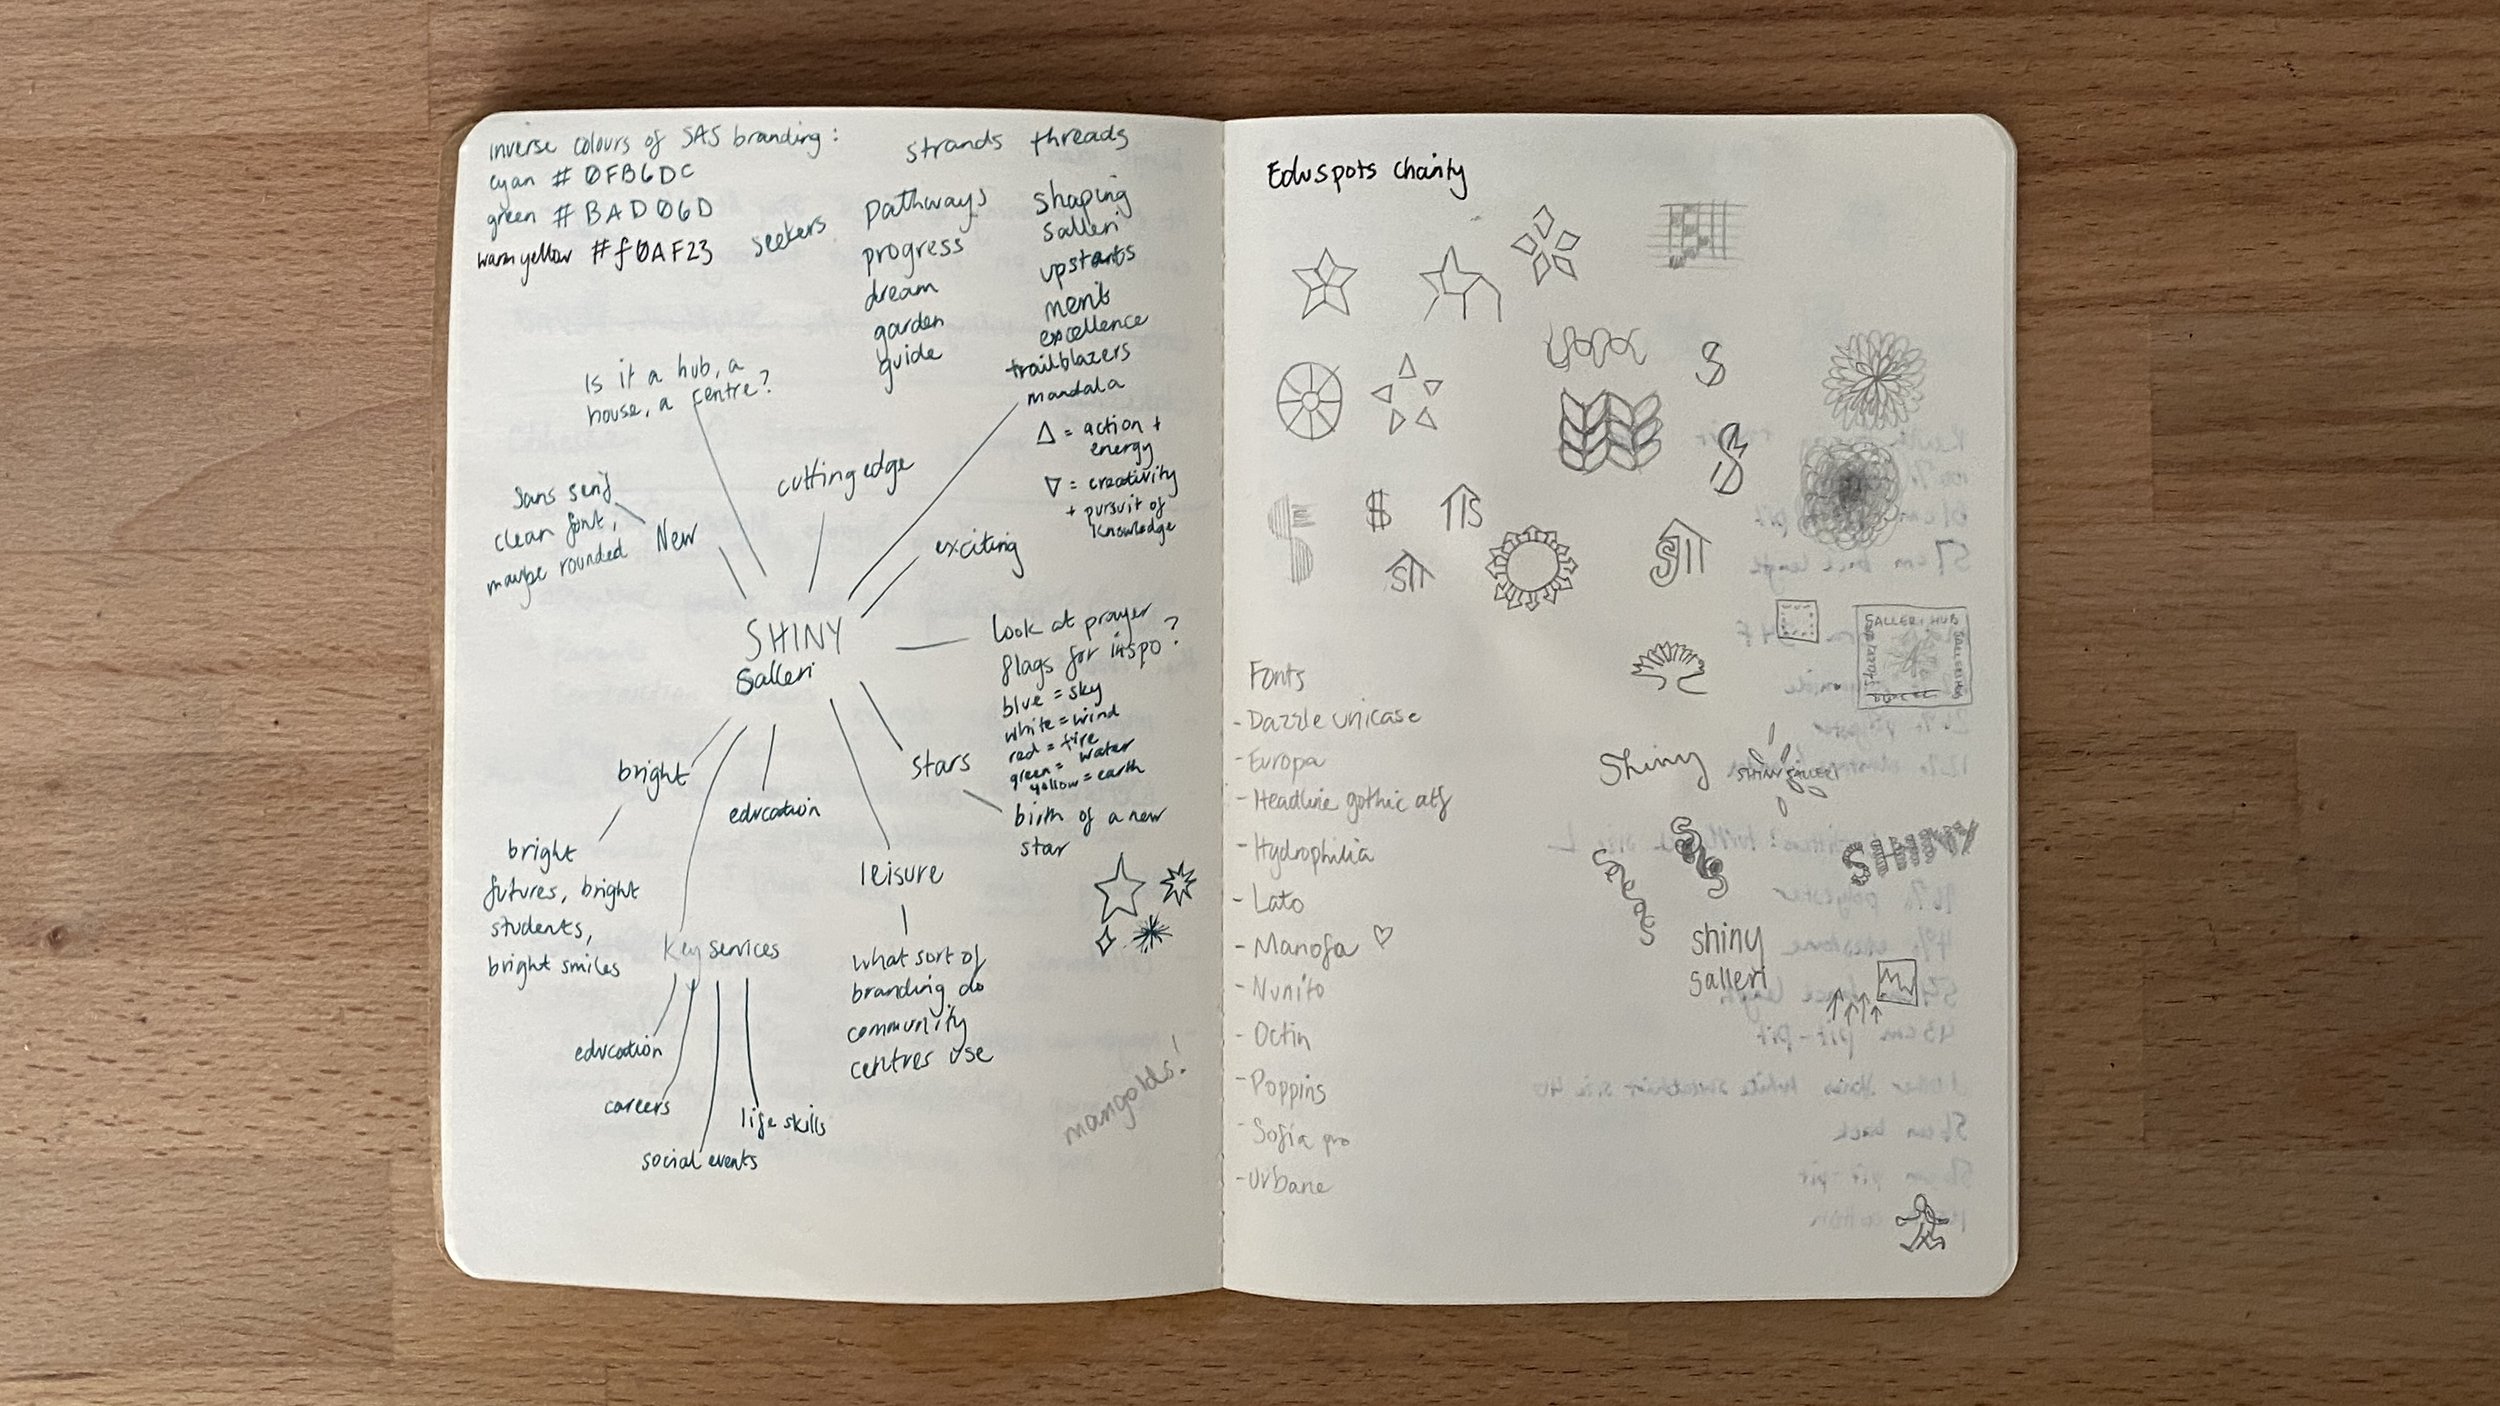 inverse colours of SAS branding:
cyan # 0FB6DC
green # BAD06D
warm yellow #f0AF23
strands threads
seekers
pathways
progress
dream
garden
guide
shaping
salleri
upstarts
merit
excellence
trailblazers
mandala
△ = action +
energy
▽ = creativity
+ pursuit of
knowledge
Is it a hub, a
house, a centre?
cutting edge
sans serif
clean font,
maybe rounded
New
exciting
SHINY
Salleri
look at prayer
flags for inspo?
blue = sky
white = wind
red = fire
green = water
yellow = earth
stars
birth of a new
star
bright
bright
futures, bright
students,
bright smiles
education
leisure
what sort of
branding do
community
centres use
key services
education
careers
social events
life skills
marigolds!
Eduspots charity
S
$
Fonts
- Dazzle unicase
- Europa
- Headline gothic atf
- Hydrophilia
- Lato
- Manofa ♡
- Nunito
- Octin
- Poppins
- Sofia pro
- Urbane
SALLERI HUB
Shiny
SHINY SALLERI
SHINY
shiny
salleri